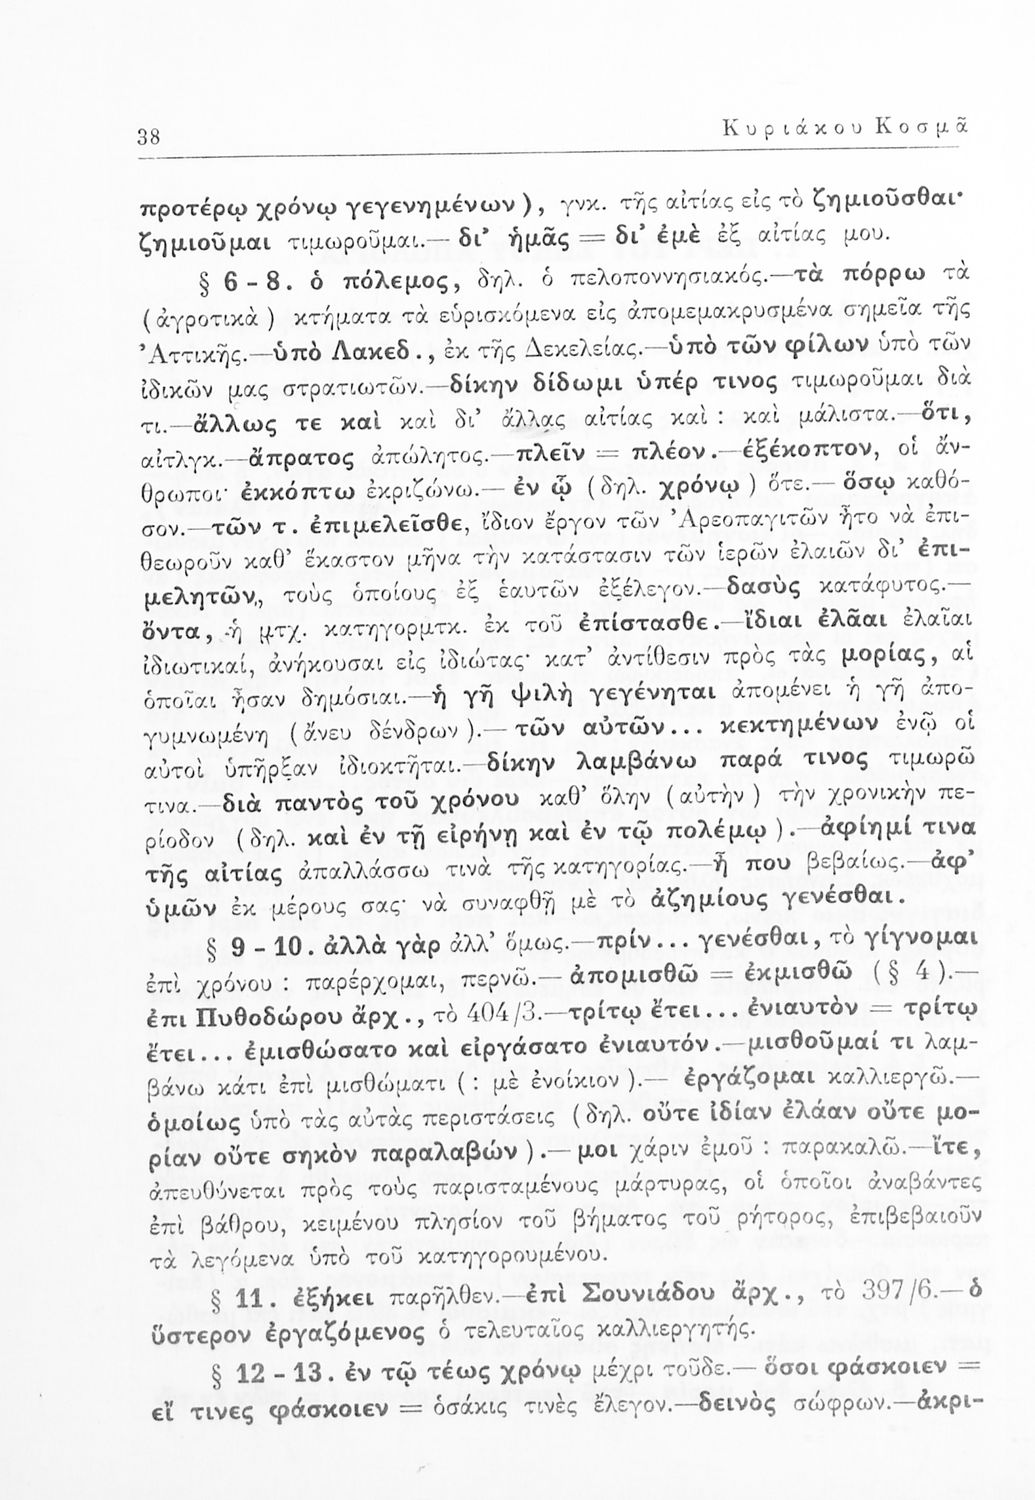 38
Κυριάκου Κοσμᾶ
προτέρῳ χρόνῳ γεγενημένων), γνκ. τῆς αἰτίας εἰς τὸ ζημιοῦσθαι·
ζημιοῦμαι τιμωροῦμαι.— δι' ἡμᾶς = δι' ἐμὲ ἐξ αἰτίας μου.
§ 6 - 8. ὁ πόλεμος, δηλ. ὁ πελοποννησιακός.—τὰ πόρρω τὰ
(ἀγροτικὰ) κτήματα τὰ εὑρισκόμενα εἰς ἀπομεμακρυσμένα σημεῖα τῆς
Ἀττικῆς.—ὑπὸ Λακεδ., ἐκ τῆς Δεκελείας.—ὑπὸ τῶν φίλων ὑπὸ τῶν
ἰδικῶν μας στρατιωτῶν.—δίκην δίδωμι ὑπέρ τινος τιμωροῦμαι διὰ
τι.—ἄλλως τε καὶ καὶ δι' ἄλλας αἰτίας καὶ : καὶ μάλιστα.—ὅτι,
αἰτλγκ.—ἄπρατος ἀπώλητος.—πλεῖν = πλέον.—ἐξέκοπτον, οἱ ἄν-
θρωποι· ἐκκόπτω ἐκριζώνω.— ἐν ᾧ (δηλ. χρόνῳ) ὅτε.— ὅσῳ καθό-
σον.—τῶν τ. ἐπιμελεῖσθε, ἴδιον ἔργον τῶν Ἀρεοπαγιτῶν ἦτο νὰ ἐπι-
θεωροῦν καθ' ἕκαστον μῆνα τὴν κατάστασιν τῶν ἱερῶν ἐλαιῶν δι' ἐπι-
μελητῶν, τοὺς ὁποίους ἐξ ἑαυτῶν ἐξέλεγον.—δασὺς κατάφυτος.—
ὄντα, ἡ μτχ. κατηγορμτκ. ἐκ τοῦ ἐπίστασθε.—ἴδιαι ἐλᾶαι ἐλαῖαι
ἰδιωτικαί, ἀνήκουσαι εἰς ἰδιώτας· κατ' ἀντίθεσιν πρὸς τὰς μορίας, αἱ
ὁποῖαι ἦσαν δημόσιαι.—ἡ γῆ ψιλὴ γεγένηται ἀπομένει ἡ γῆ ἀπο-
γυμνωμένη (ἄνευ δένδρων).—τῶν αὐτῶν... κεκτημένων ἐνῷ οἱ
αὐτοὶ ὑπῆρξαν ἰδιοκτῆται.—δίκην λαμβάνω παρά τινος τιμωρῶ
τινα.—διὰ παντὸς τοῦ χρόνου καθ' ὅλην (αὐτὴν) τὴν χρονικὴν πε-
ρίοδον (δηλ. καὶ ἐν τῇ εἰρήνῃ καὶ ἐν τῷ πολέμῳ).—ἀφίημί τινα
τῆς αἰτίας ἀπαλλάσσω τινὰ τῆς κατηγορίας.—ἦ που βεβαίως.—ἀφ'
ὑμῶν ἐκ μέρους σας· νὰ συναφθῇ μὲ τὸ ἀζημίους γενέσθαι.
§ 9 - 10. ἀλλὰ γὰρ ἀλλ' ὅμως.—πρίν... γενέσθαι, τὸ γίγνομαι
ἐπὶ χρόνου : παρέρχομαι, περνῶ.— ἀπομισθῶ = ἐκμισθῶ (§ 4).—
ἐπι Πυθοδώρου ἄρχ., τὸ 404/3.—τρίτῳ ἔτει... ἐνιαυτὸν = τρίτῳ
ἔτει... ἐμισθώσατο καὶ εἰργάσατο ἐνιαυτόν.—μισθοῦμαί τι λαμ-
βάνω κάτι ἐπὶ μισθώματι (: μὲ ἐνοίκιον).— ἐργάζομαι καλλιεργῶ.—
ὁμοίως ὑπὸ τὰς αὐτὰς περιστάσεις (δηλ. οὔτε ἰδίαν ἐλάαν οὔτε μο-
ρίαν οὔτε σηκὸν παραλαβών).— μοι χάριν ἐμοῦ : παρακαλῶ.—ἴτε,
ἀπευθύνεται πρὸς τοὺς παρισταμένους μάρτυρας, οἱ ὁποῖοι ἀναβάντες
ἐπὶ βάθρου, κειμένου πλησίον τοῦ βήματος τοῦ ρήτορος, ἐπιβεβαιοῦν
τὰ λεγόμενα ὑπὸ τοῦ κατηγορουμένου.
§ 11. ἐξήκει παρῆλθεν.—ἐπὶ Σουνιάδου ἄρχ., τὸ 397/6.—ὁ
ὕστερον ἐργαζόμενος ὁ τελευταῖος καλλιεργητής.
§ 12 - 13. ἐν τῷ τέως χρόνῳ μέχρι τοῦδε.— ὅσοι φάσκοιεν =
εἴ τινες φάσκοιεν = ὁσάκις τινὲς ἔλεγον.—δεινὸς σώφρων.—ἀκρι-